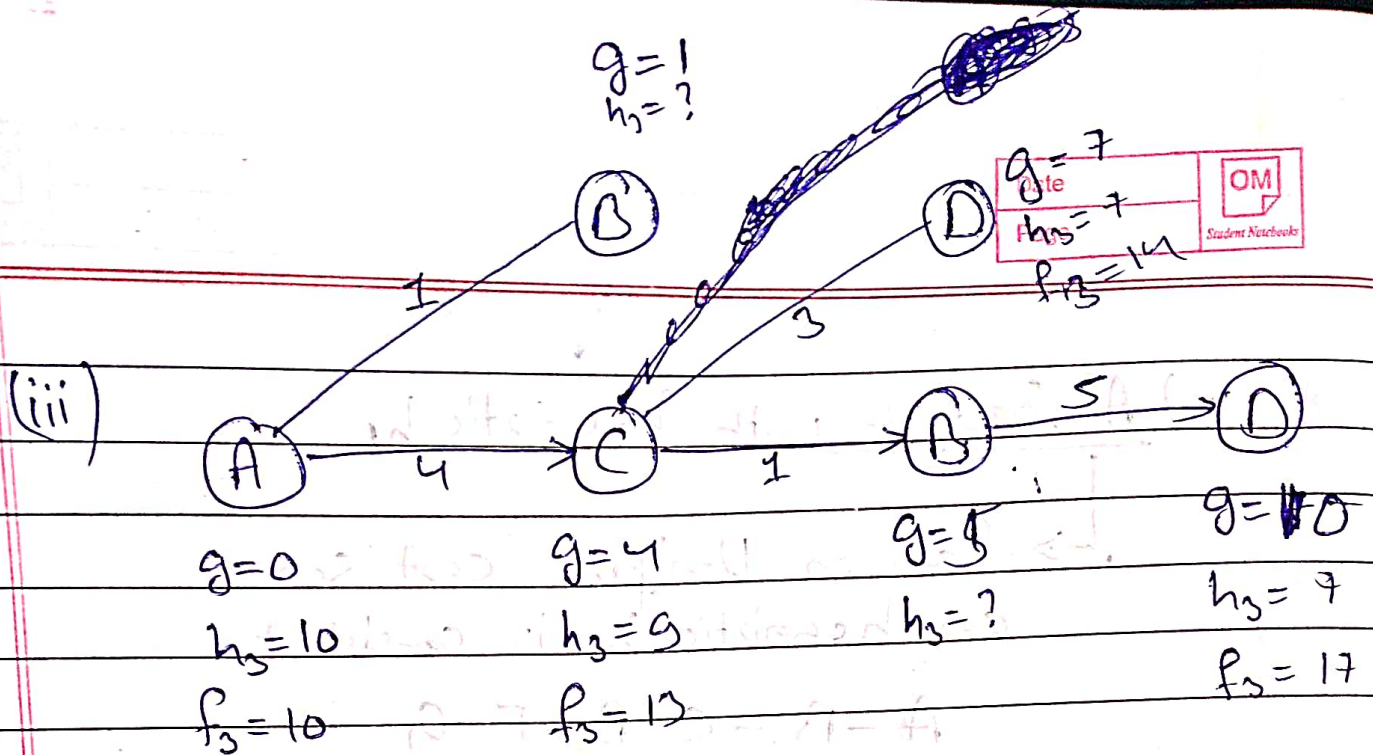 g=1
h₃=?
B
D
g=7
h₃=7
f₃=14
OM
Student Notebooks
1
3
(iii)
A
4
C
1
B
5
D
g=0
h₃=10
f₃=10
g=4
h₃=9
f₃=13
g=5
h₃=?
g=10
h₃=7
f₃=17